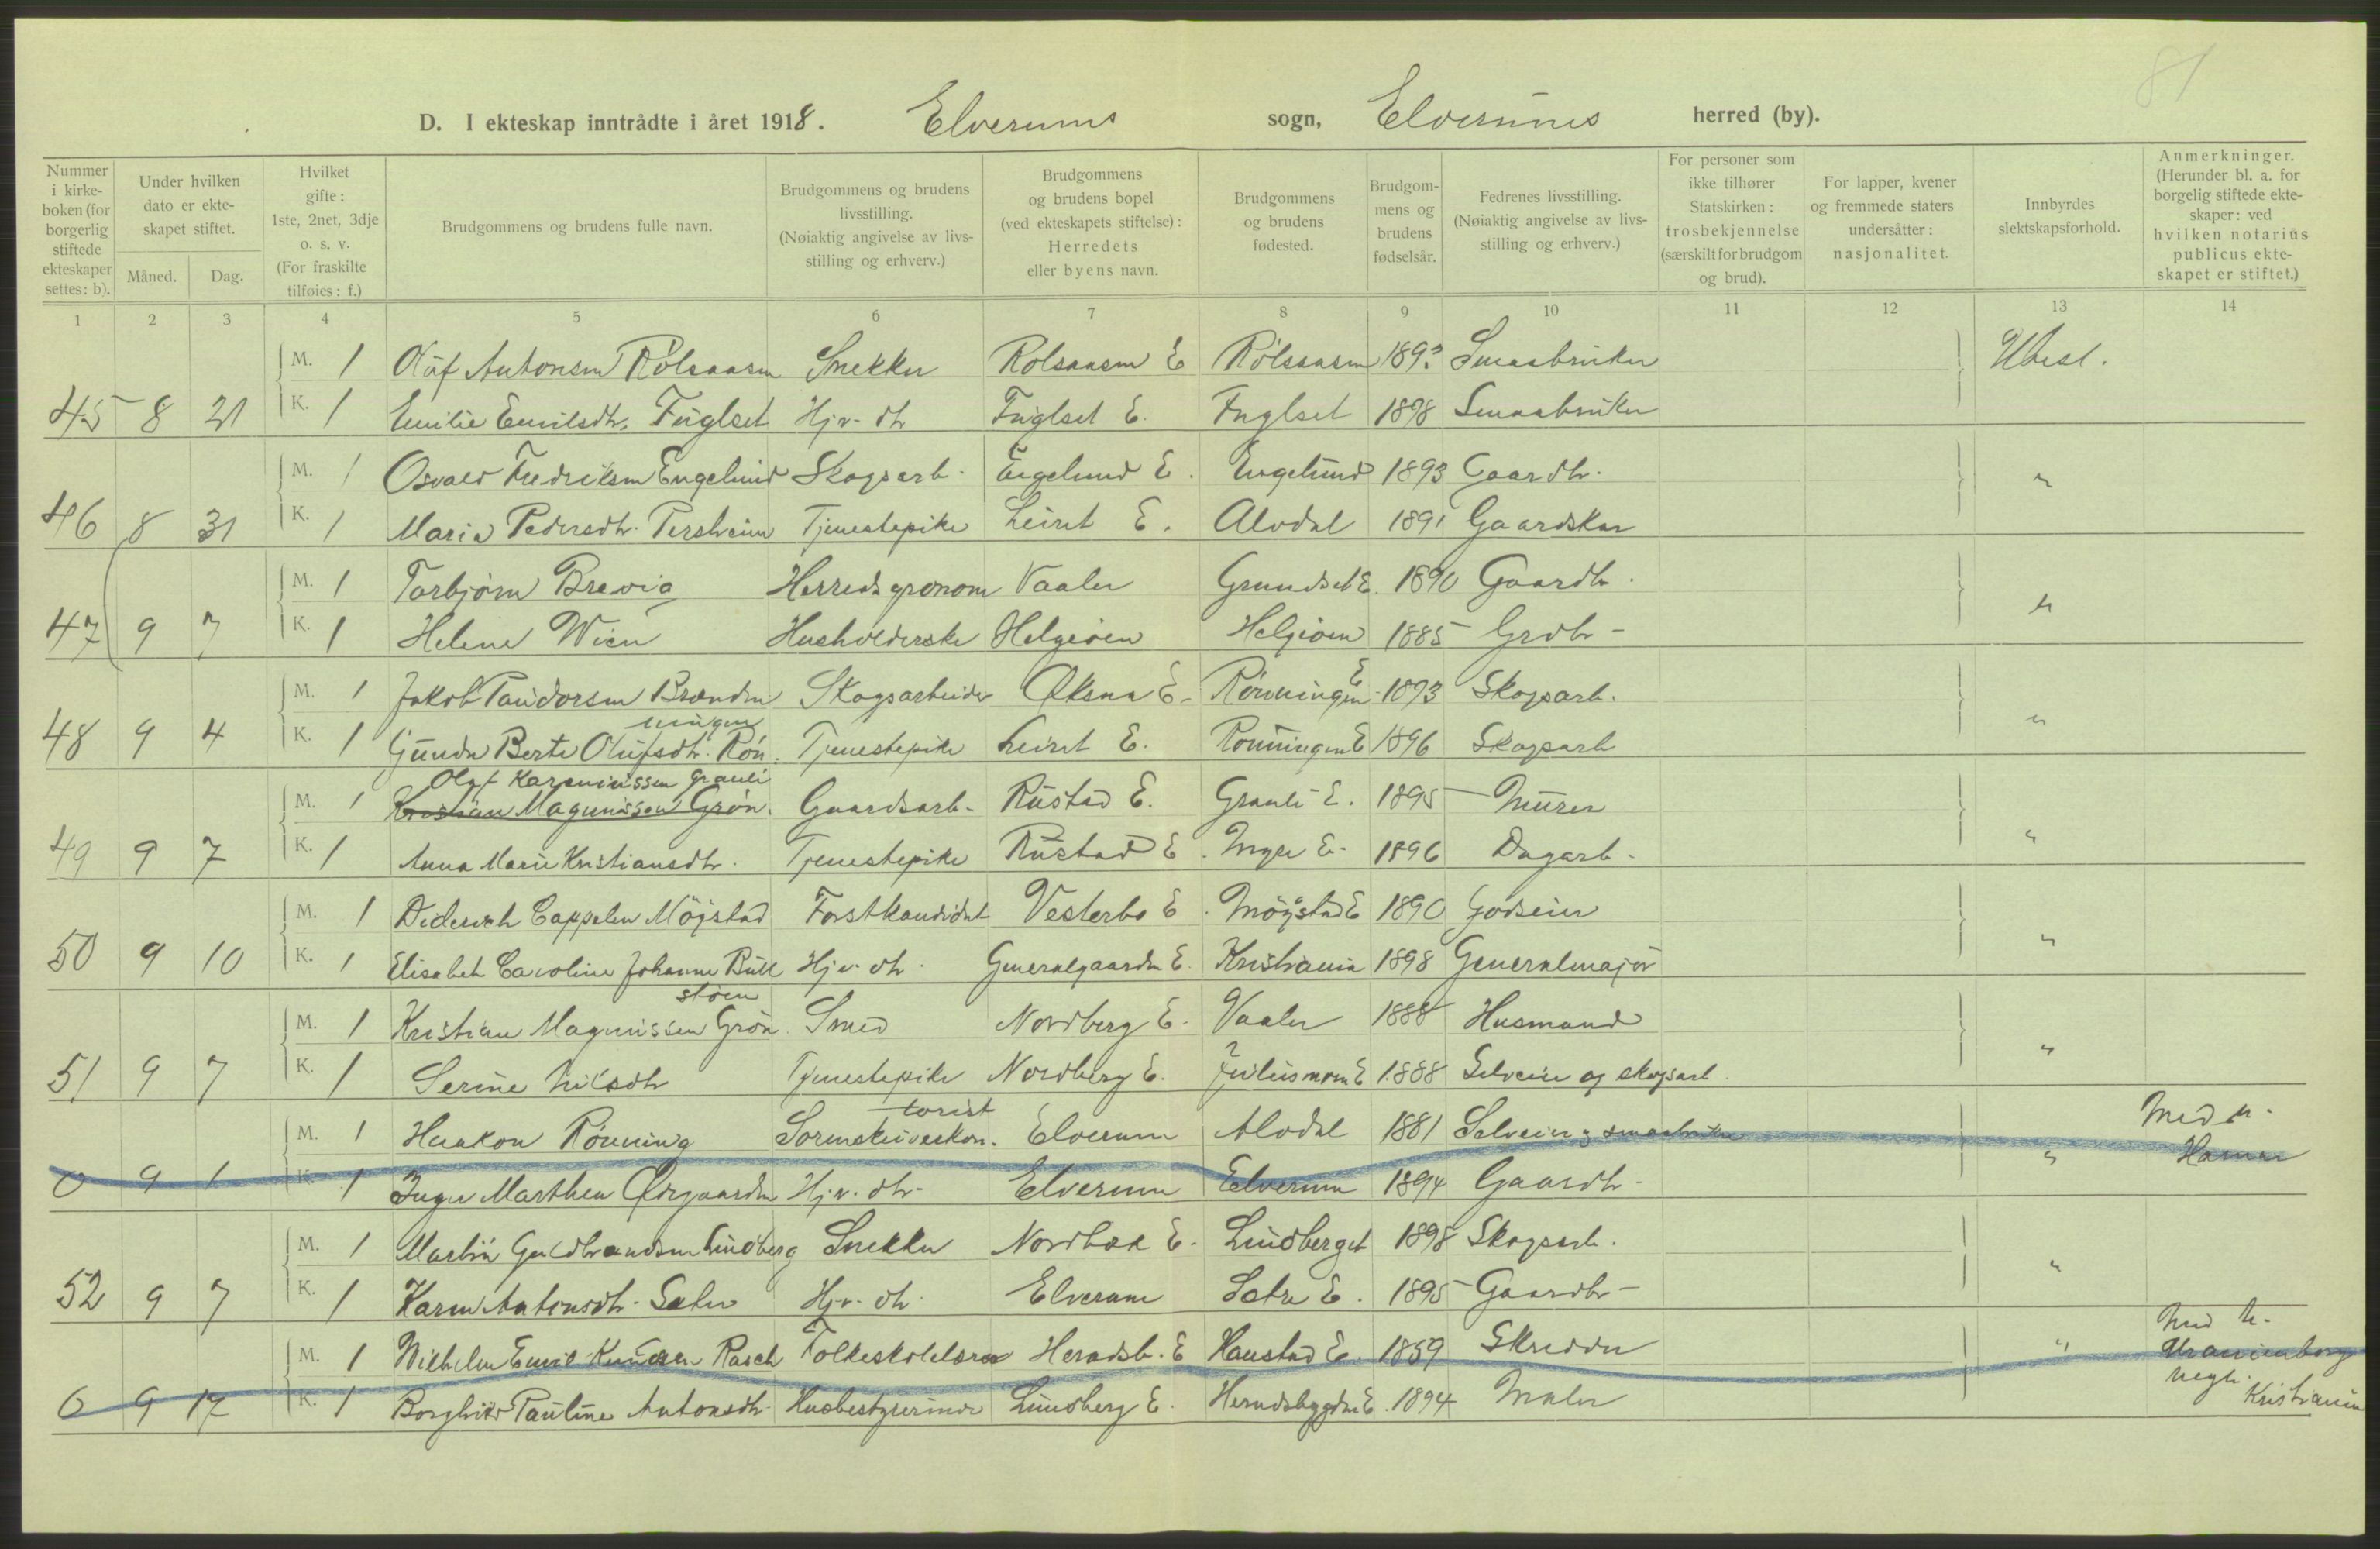 81
D. I ekteskap inntrådte i året 1918. Elverums sogn, Elverums herred (by).
Nummer i kirkeboken (for borgerlig stiftede ekteskaper settes: b). Under hvilken dato er ekteskapet stiftet. Måned. Dag. Hvilket gifte: 1ste, 2net, 3dje o. s. v. (For fraskilte tilføies: f.) Brudgommens og brudens fulle navn. Brudgommens og brudens livsstilling. (Nøiaktig angivelse av livsstilling og erhverv.) Brudgommens og brudens bopel (ved ekteskapets stiftelse): Herredets eller byens navn. Brudgommens og brudens fødested. Brudgommens og brudens fødselsår. Fedrenes livsstilling. (Nøiaktig angivelse av livsstilling og erhverv.) For personer som ikke tilhører Statskirken: trosbekjennelse (særskilt for brudgom og brud). For lapper, kvener og fremmede staters undersåtter: nasjonalitet. Innbyrdes slektskapsforhold. Anmerkninger. (Herunder bl. a. for borgelig stiftede ekteskaper: ved hvilken notarius publicus ekteskapet er stiftet.)
1 2 3 4 5 6 7 8 9 10 11 12 13 14
M. 1 Olaf Antonsen Rolsaasen Snekker Rolsaasen E Rolsaasen 189? Smaabruker Ubesl.
45 8 21 K. 1 Emilie Emilsdtr. Fuglset Hjv. dtr Fuglset E. Fuglset 1898 Smaabruker
M. 1 Osvald Fredriksen Engelund Skogsarb. Engelund E. Engelund 1893 Gaardbr. "
46 8 31 K. 1 Maria Pedersdtr. Tjenestepike Leiret E. Alvdal 1891 Gaardskar
M. 1 Torbjørn Brevig Herredsgronom Vaaler Grundset E. 1890 Gaardbr.
47 9 7 K. 1 Helene Wien Husholderske Helgøen Helgøen 1885 Grdbr - "
M. 1 Jakob Brænden Skogsarbeider Øksna E. Rønningen E 1893 Skogsarb.
48 9 4 K. 1 Gunda Berte Olufsdtr. Rønningen Tjenestepike Leiret E. Rønningen E 1896 Skogsarb "
Olaf Kareniussen Grauli
M. 1 Kristian Magnussen Grøn. Gaardsarb. Rustad E. Grauli E. 1895 Murer
49 9 7 K. 1 Anna Marie Kristiansdtr. Tjenestepike Rustad E. Myre E. 1896 Dagarb. "
M. 1 Diderich Cappelen Møystad Forstkandidat Vesterbo E. Møystad E 1890 Godseier
50 9 10 K. 1 Elisabeth Caroline Johanne Bull Hjv. dtr. Generalgaarden E. Kristiania 1898 Generalmajor "
støen
M. 1 Kristian Magnussen Grøn. Smed Nordberg E. Vaaler 1888 Husmand
51 9 7 K. 1 Serine Nilsdtr Tjenestepike Nordberg E. Juliusmoen E 1888 Selveier og skogsarb. "
torist
M. 1 Haakon Rønning Sorenskriverkon. Elverum Alvdal 1881 Selveier og smaabruker Med u.
0 9 1 K. 1 Inga Marthea Ørgaarden Hjv. dtr. Elverum Elverum 1894 Gaardbr. " Hamar
M. 1 Martin Guldbrandsen Lindberg Snekker Nordbæk E. Lindberget 1898 Skogsarb.
52 9 7 K. 1 Karen Antonsdtr. Sætre Hjv. dtr. Elverum Sætre E. 1895 Gaardbr - "
M. 1 Wilhelm Emil Knudsen Rasch Folkeskolelærer Heradsb. E Haustad E. 1859 Skredder " Med u. Uranienborg
0 9 17 K. 1 Borghild Pauline Antonsdtr. Husbestyrerinde Lundberg E. Heradsbygden E. 1894 Maler
Kristiania